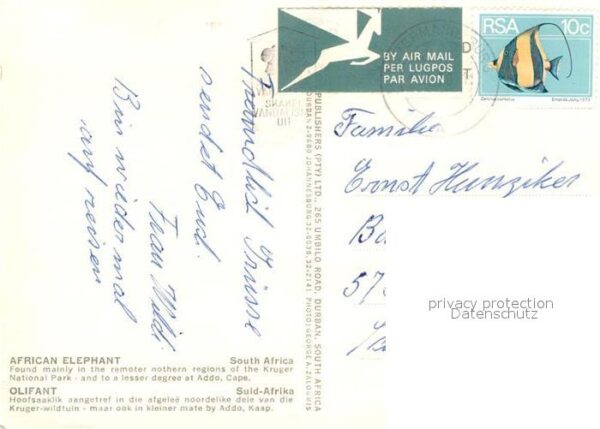 BY AIR MAIL
PER LUGPOS
PAR AVION
RSA 10c
Zanclus canescens
SKAKEL
VANDALISME
UIT
freundlich Grüsse
sendet Euch
Frau Wildi
Bin wieder mal
auf reisen
PUBLISHERS (PTY) LTD., 265 UMBILO ROAD, DURBAN, SOUTH AFRICA
DURBAN JOHANNESBURG PHOTO: GEORGE A. ZALOUMIS
Familie
Ernst Hunziker
Ba
573
privacy protection
Datenschutz
AFRICAN ELEPHANT South Africa
Found mainly in the remoter nothern regions of the Kruger
National Park - and to a lesser degree at Addo, Cape.
OLIFANT Suid-Afrika
Hoofsaaklik aangetref in die afgeleë noordelike dele van die
Kruger-wildtuin - maar ook in kleiner mate by Addo, Kaap.